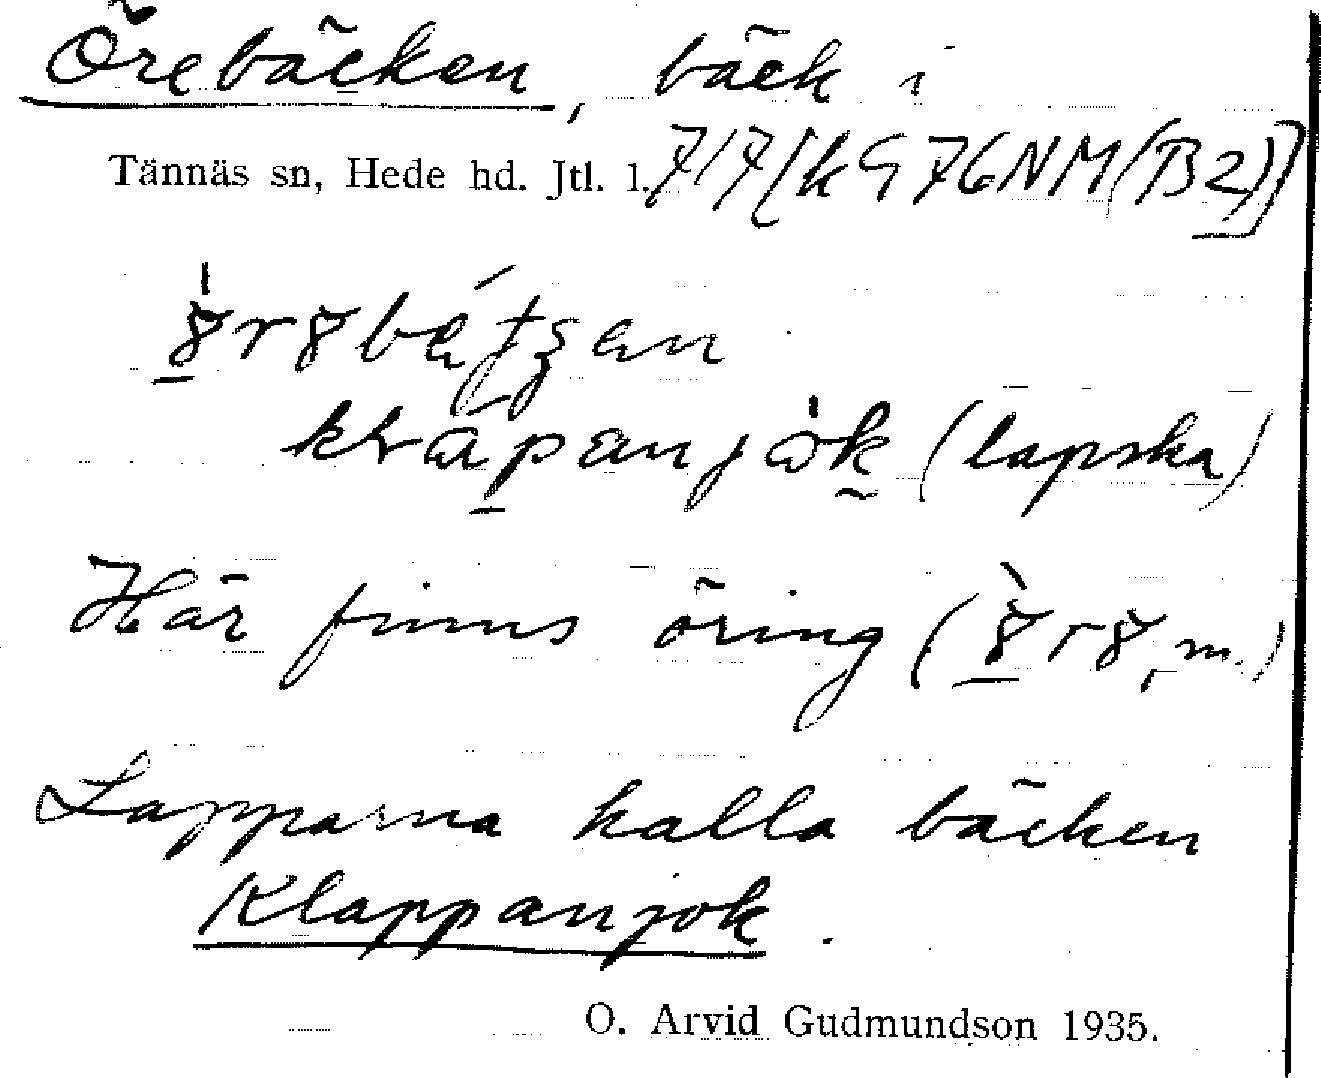 Örebäcken, bäck i
Tännäs sn, Hede hd. Jtl. l. 717[kG76NM(B2)]
(lapska)
Här finns öring ( , m.)
Lapparna kalla bäcken
Klappanjok.
O. Arvid Gudmundson 1935.